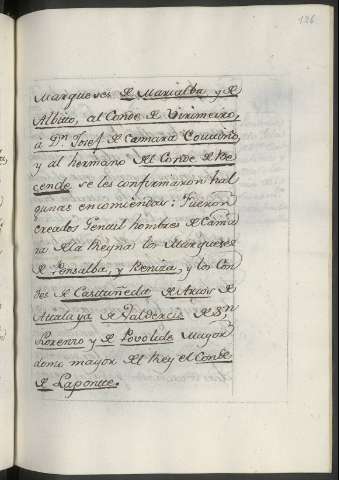 126
Marqueses de Marialba y de
Albito, al Conde de Virimeiro,
á Dn. Josef de Camara Coutiño,
y al hermano del Conde de Re
cende se les confirmaron hal
gunas encomiendas: Fueron
creados Gentil hombres de Cama
ra de la Reyna los Marqueses
de Ponsalba, y Peniza, y los Con
des de Castañeda de Arcos de
Atalaya de Valdereis de Sn.
Lorenzo y de Povolide Mayor
domo mayor del Rey el Conde
de Laponte.